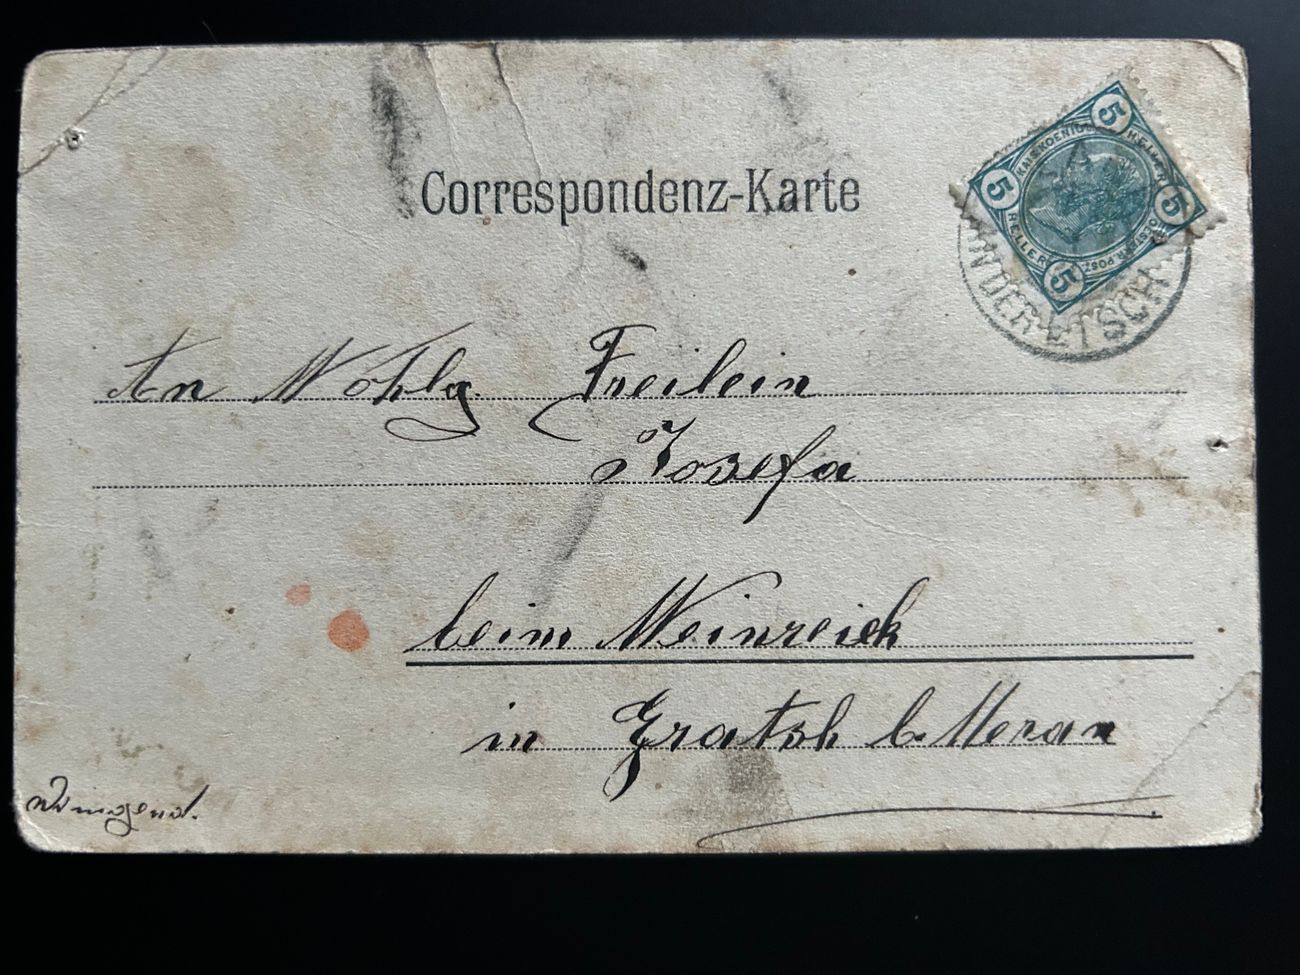 Correspondenz-Karte
5 5 5 5
KAIS.KOENIGL. HELLER POST
N DER ETSCH
An Wohlg. Freilein
Josefa
beim Weinreich
in Gratsh b. Meran